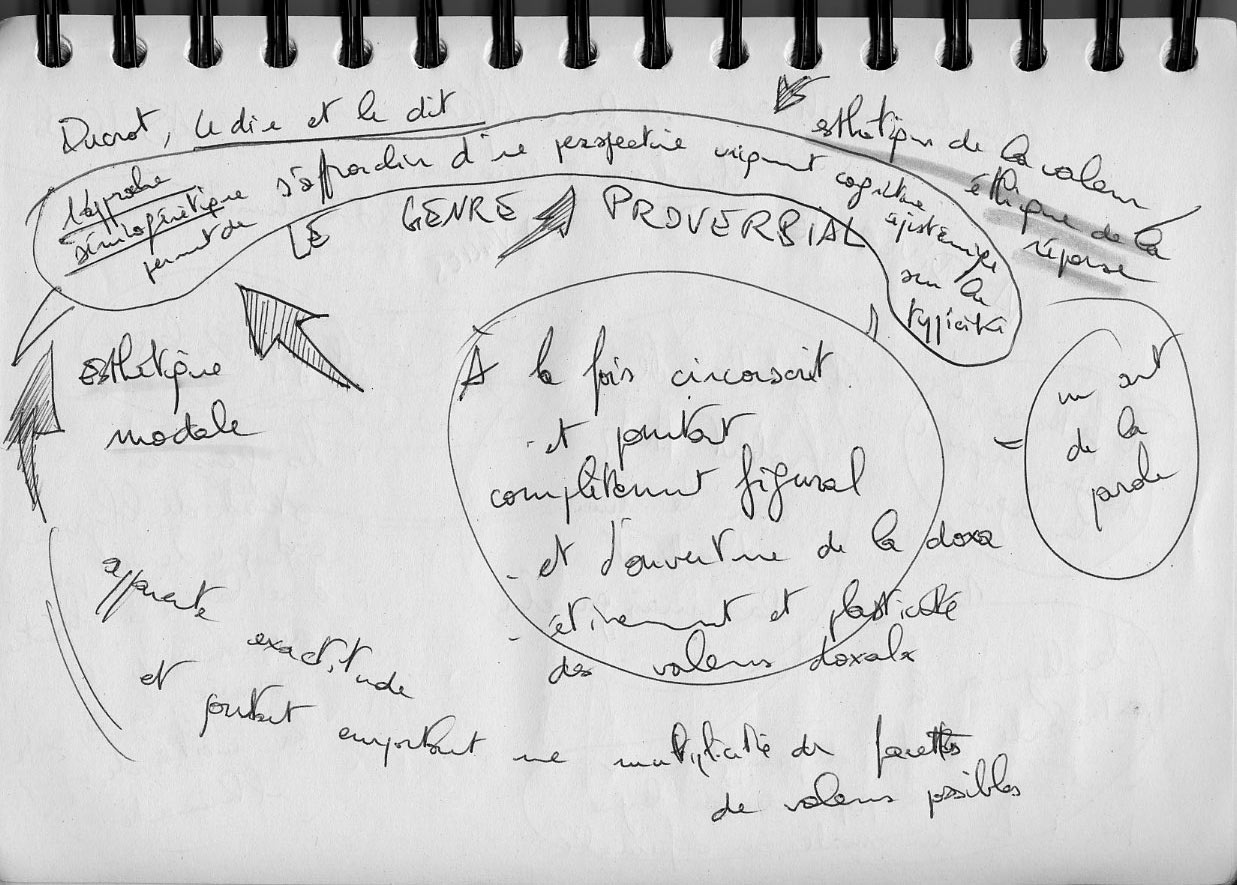 Ducrot, Le dire et le dit
L'approche
sémiogénétique
permet de
s'affranchir d'une perspective uniquement cognitive
épistémique
sur la
typicité
esthétique de la valeur
éthique de la
réponse
LE GENRE PROVERBIAL
esthétique
modale
A la fois circonscrit
- et pourtant
complètement figural
- et d'ouverture de la doxa
- étirement et plasticité
des valeurs doxales
=
un art
de la
parole
apparente
exactitude
et pourtant emportant une multiplicité de facettes
de valeurs possibles